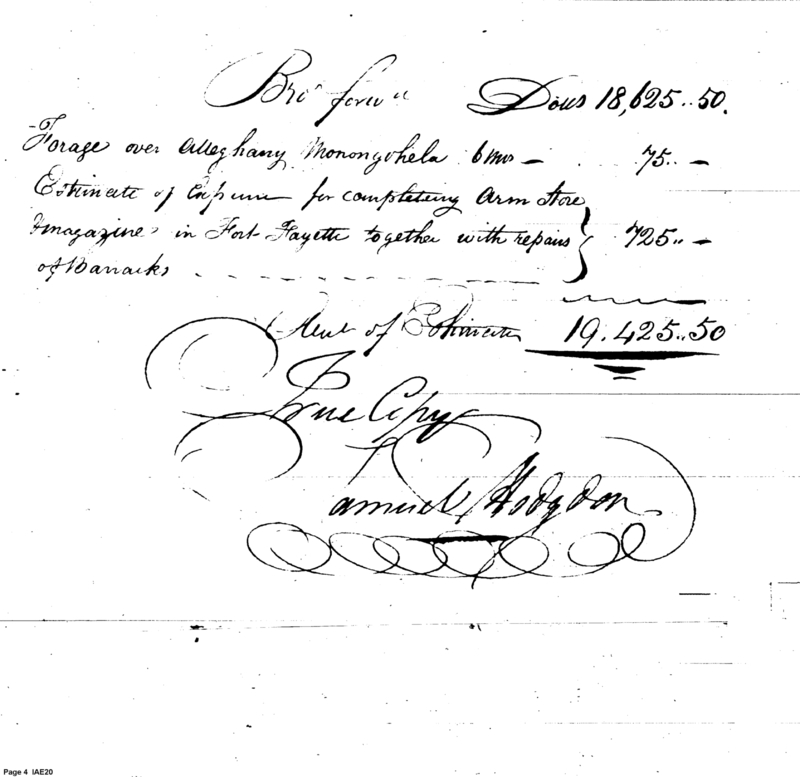 Bro.t forw.d Dolls 18,625..50.
Forage over Alleghany Monongohela 6 mos — 75.. —
Estimate of Expence for compleating Arm Store
& magazine in Fort Fayette together with repairs } 725.. —
of Barracks
Amt of Estimate 19.425..50
True Copy
Samuel Hodgdon
Page 4 IAE20